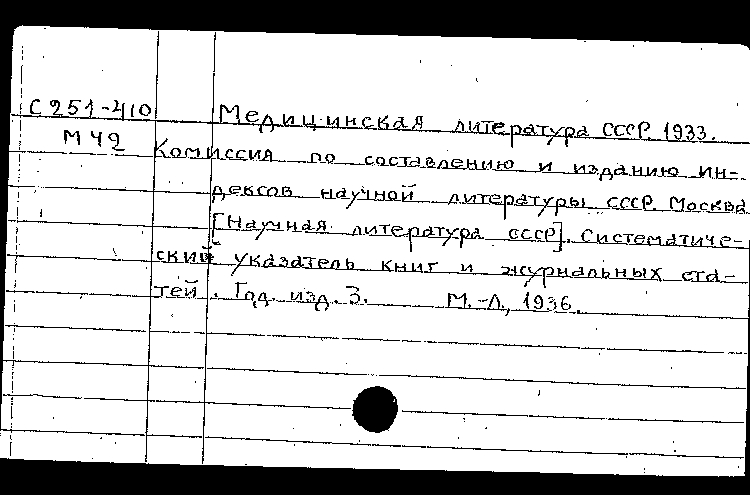 С251-410 Медицинская литература СССР. 1933.
М42 Комиссия по составлению и изданию ин-
дексов научной литературы СССР. Москва
[Научная литература СССР]. Систематиче-
ский указатель книг и журнальных ста-
тей. Год. изд. 3. М.-Л., 1936.